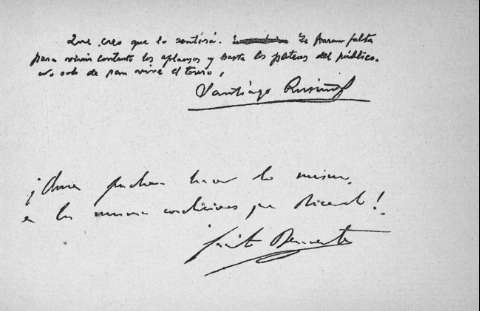 Que creo que lo sentirá. Le harán falta
para vivir contento los aplausos y hasta los pateos del público.
No solo de pan vive el torero,
Santiago Rusiñol
¡ hacer lo mismo,
en las mismas condiciones que Ricardo!
Jacinto Benavente